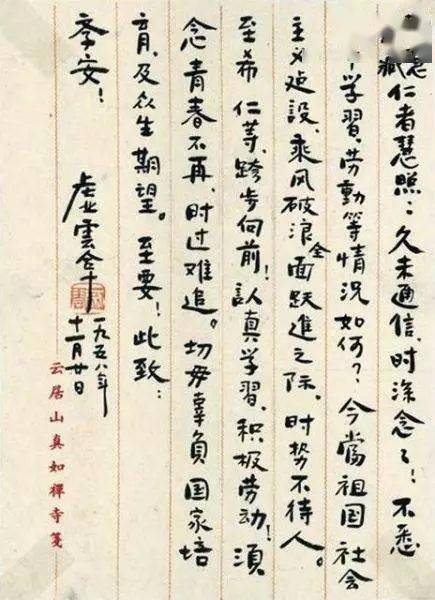 藏仁者慧照：久未通信，时深念々！不悉
学習、劳動等情况如何？今當祖国社会
主义建設，乘风破浪，全面跃進之际，时势不待人。
至希 仁等，跨步向前！认真学習，积极劳动！须
念青春不再，时过难追。切毋辜負国家培
育，及众生期望。至要！此致：
季安！
虚雲合十
一九五八年
十一月廿日
云居山真如禪寺箋